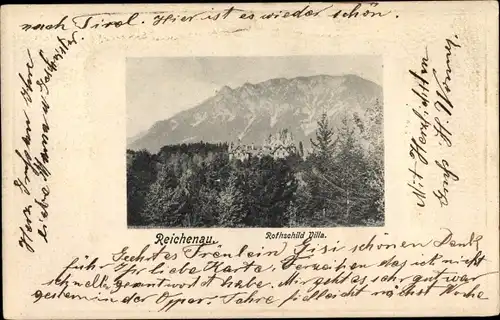 nach Tirol. Hier ist es wieder schön.
Reichenau.
Rothschild Villa.
Geehrtes Fräulein Gisi schönen Dank
für Ihr liebe Karte. Verzeihen das ich nicht
schneller geantwortet habe. Mir geht es sehr gut war
gestern in der Oper. Fahre vielleicht nächst Woche
Mit Herzlichsten
Gruß H.
liebe Mama u. Geschwister